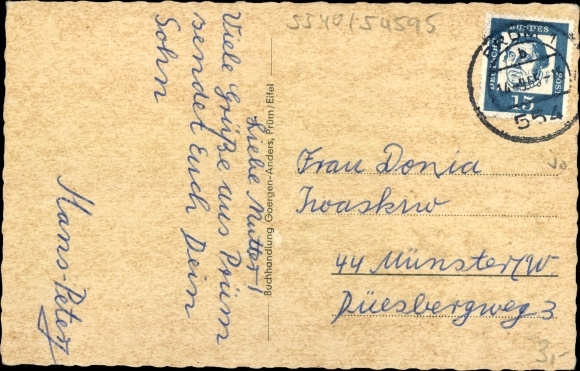 5540/54595
Liebe Mutter!
Viele Grüße aus Prüm
sendet Euch Dein
Sohn
Hans-Peter
Buchhandlung Goergen-Anders, Prüm/Eifel
PRÜM 1
b
554
15
Frau Donia
44 Münster/W
Düesbergweg 3
3,-